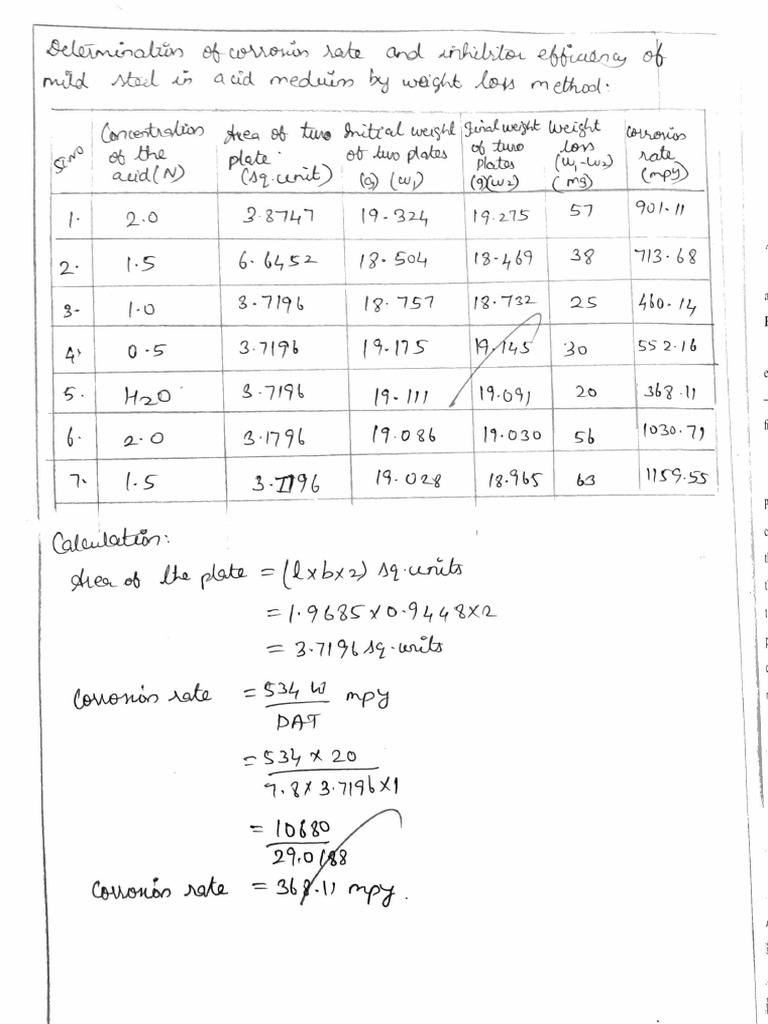 Determination of corrosion rate and inhibitor efficiency of
mild steel in acid medium by weight loss method:
Sl.NO | Concentration of the acid (N) | Area of two plate (sq.unit) | Initial weight of two plates (g) (w1) | Final weight of two Plates (g)(w2) | Weight loss (w1-w2) (mg) | Corrosion rate (mpy)
1. | 2.0 | 3.8747 | 19.324 | 19.275 | 57 | 901.11
2. | 1.5 | 6.6452 | 18.504 | 18.469 | 38 | 713.68
3. | 1.0 | 3.7196 | 18.757 | 18.732 | 25 | 460.14
4. | 0.5 | 3.7196 | 19.175 | 19.145 | 30 | 552.16
5. | H2O | 3.7196 | 19.111 | 19.091 | 20 | 368.11
6. | 2.0 | 3.1796 | 19.086 | 19.030 | 56 | 1030.71
7. | 1.5 | 3.1796 | 19.028 | 18.965 | 63 | 1159.55
Calculation:
Area of the plate = (l x b x 2) sq.units
= 1.9685 x 0.9448 x 2
= 3.7196 sq.units
Corrosion rate = 534 W / DAT mpy
= 534 x 20 / 7.8 x 3.7196 x 1
= 10680 / 29.0188
Corrosion rate = 368.11 mpy.